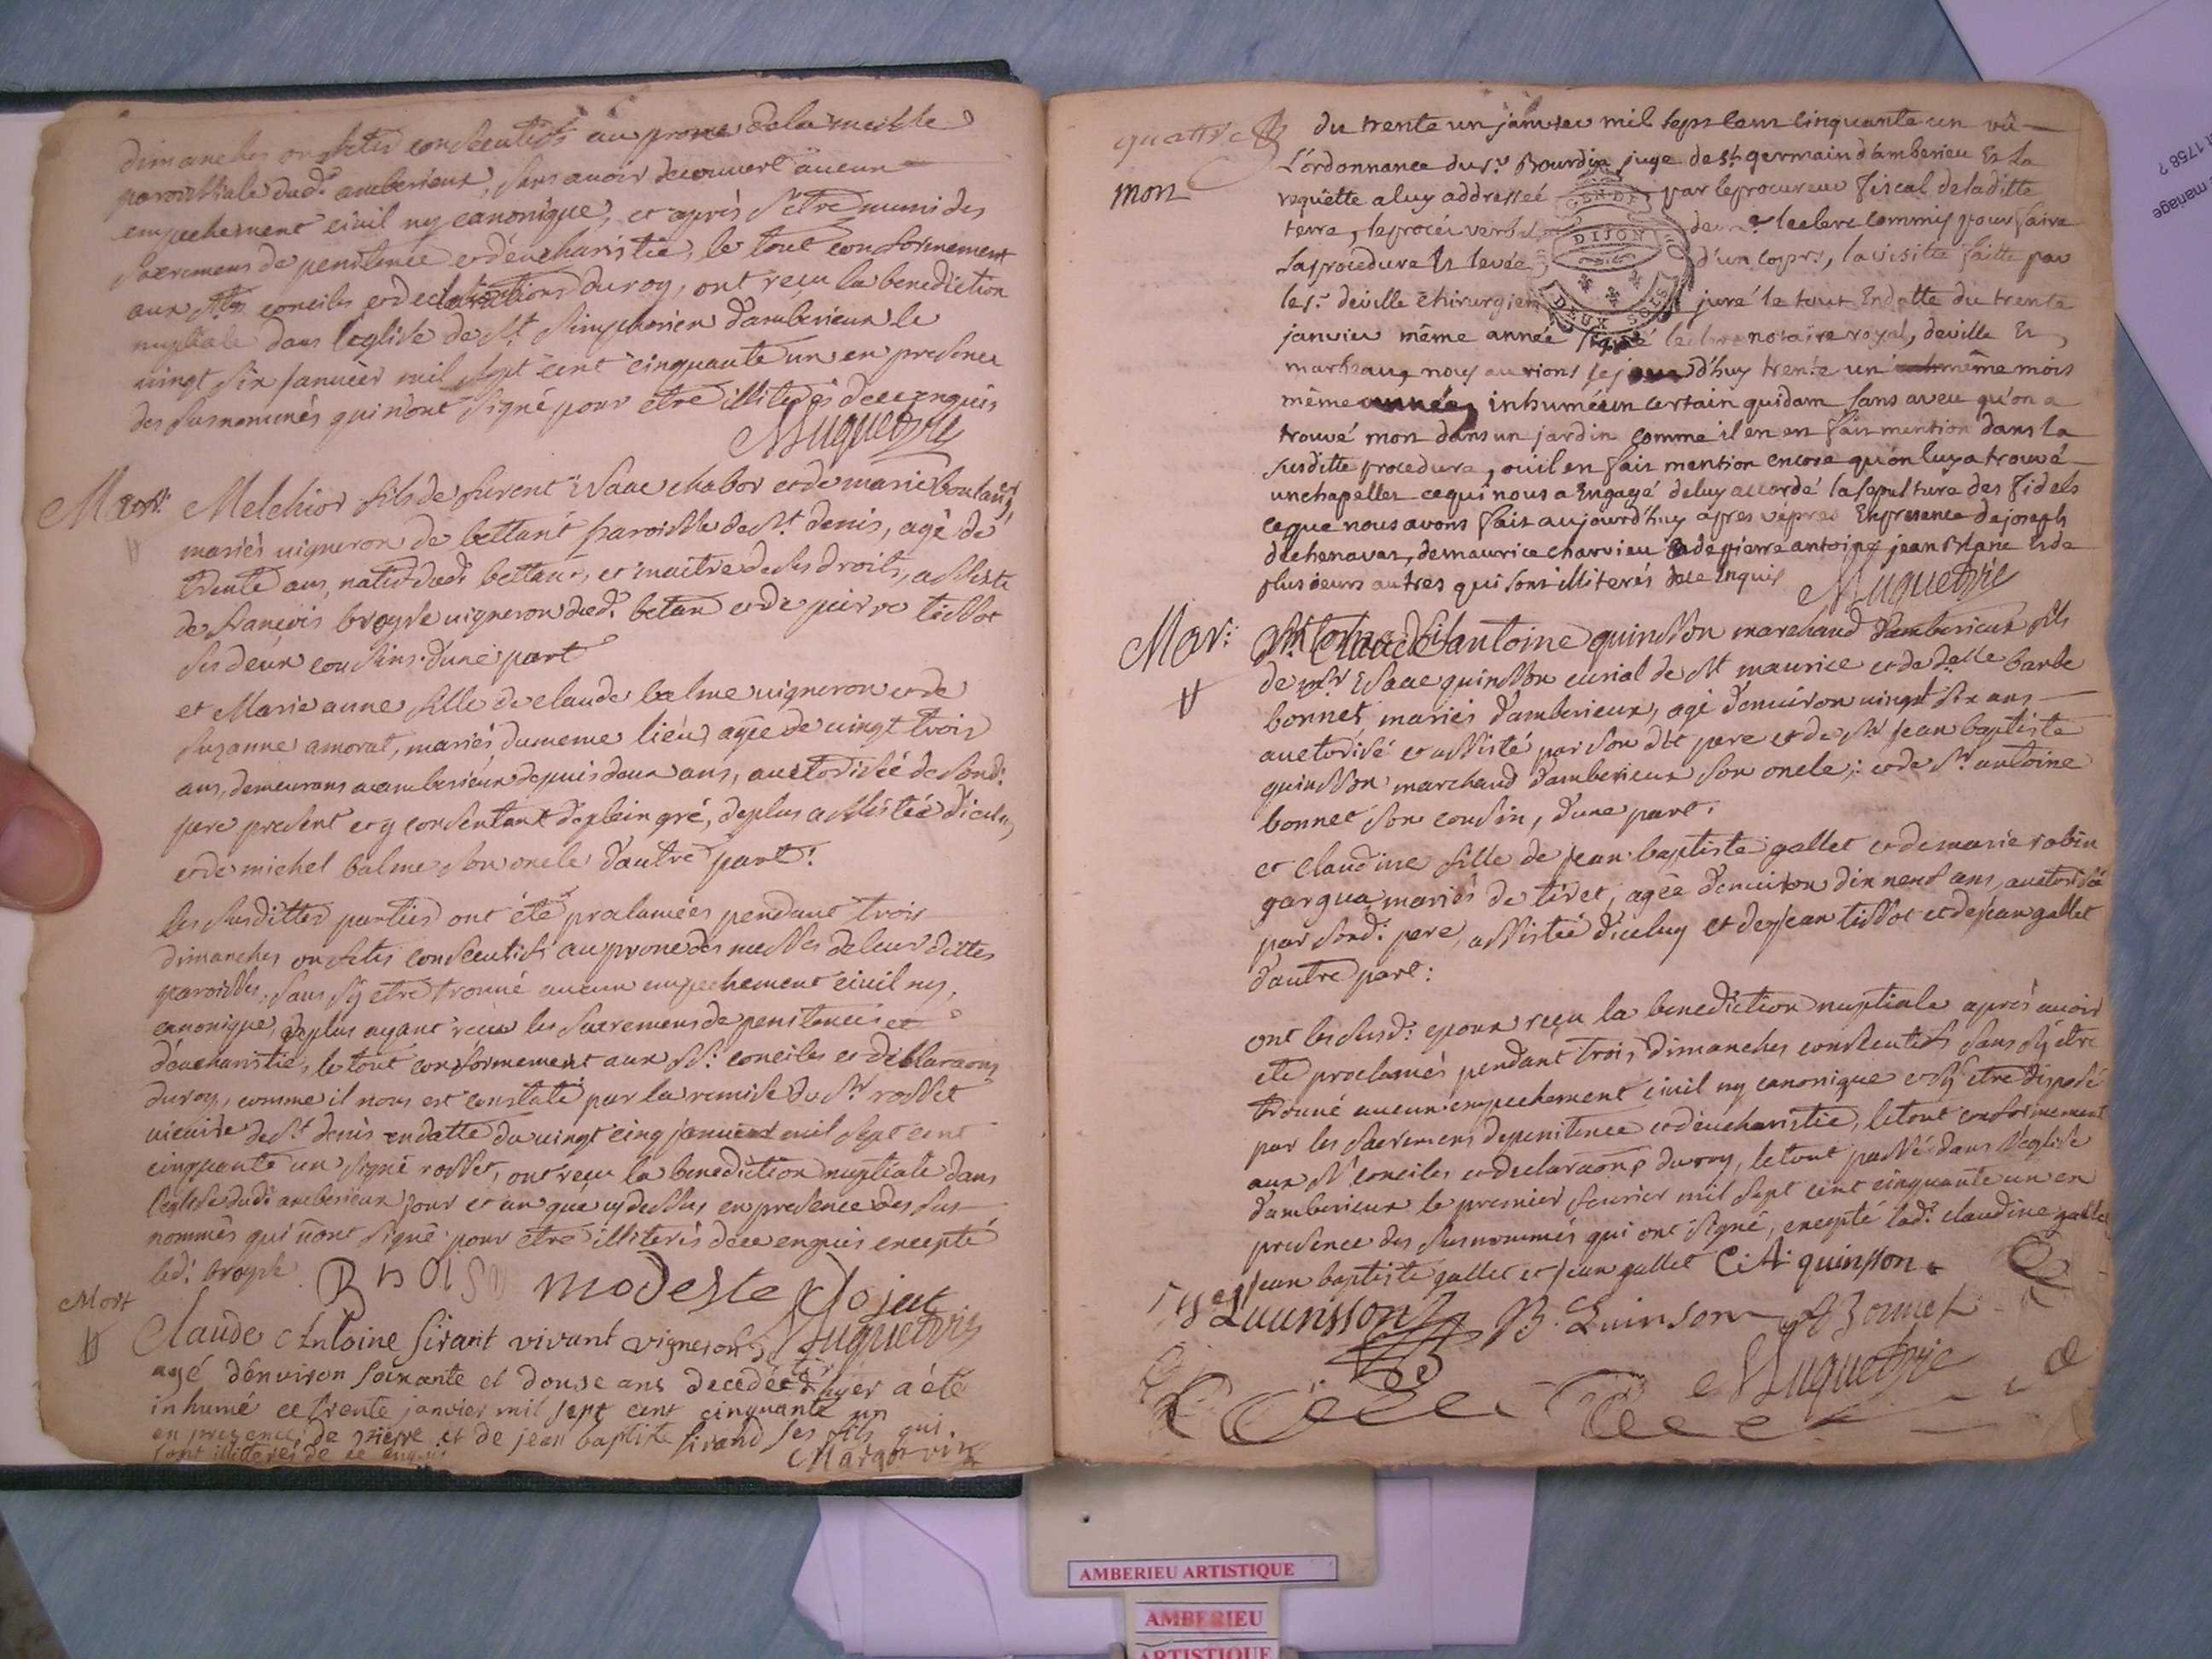 dimanches ou fetes consecutifs au prone de la messe
paroissiale dud: amberieux, sans avoir decouvert aucun
empechement civil ny canonique, et après s'etre munis des
sacremens de penitence et d'eucharistie, le tout conformement
aux sts conciles et declarations du roy, ont reçu la benediction
nuptiale dans l'eglise de st simphorien d'amberieux le
vingt six janvier mil sept cent cinquante un en presence
des susnommés qui n'ont signé pour etre illiterés de ce enquis
Muguet vic
Mar:
Melchior fils de furent isaac chabor et de marie
mariés vigneron de bettant paroisse de st denis, agé de
trente ans, natif dud: bettant, et maitre de ses droits, assisté
de françois vigneron dud: betan et de tissot
ses deux cousins d'une part
et Marie anne fille de claude balme vigneron et de
suzanne amorat, mariés du meme lieu, agée de vingt trois
ans, demeurans a amberieux depuis deux ans, auctorisée de sond:
pere present et y consentant de plein gré, de plus assistée d'icelu
et de michel balme son oncle d'autre part:
les susdittes parties ont été proclamées pendant trois
dimanches ou fetes consecutifs au prone des messes de leurs dittes
paroisses, sans s'y etre trouvé aucun empechement civil ny
canonique, de plus ayant reçu les sacremens de penitence et
d'eucharistie, le tout conformement aux sts: conciles et declaraons
du roy, comme il nous est constaté par la remise du sr rosset
vicaire de st denis en datte du vingt cinq janvier mil sept cent
cinquante un signé rosset, ont reçu la benediction nuptiale dans
l'eglise dud: amberieux jour et an que cy dessus en presence des sus
nommés qui n'ont signé pour etre illiterés de ce enquis excepté
led:
modeste Dojat
Muguet vic
Mort
Claude Antoine sirant vivant vigneron de
agé d'environ soixante et douse ans decedé hyer a été
inhumé ce trente janvier mil sept cent cinquante un
en presence de pierre et de jean baptiste sirand ses fils qui
sont illiterés de ce enquis
quatre
mort
du trente un janvier mil sept cent cinquante un vû
L'ordonnance du sr. Bourdin juge de st germain d'amberieu Et la
requëtte a luy addresseé par le procureur fiscal de laditte
terre, le procés verbal leclerc commis pour faire
la procedure Et levée d'un corps, la visitte faitte par
le sr. deville chirurgien juré le tout En datte du trente
janvier même année signé leclerc notaire royal, deville Et
marteau, nous aurions cejourd'huy trente un même mois
même année inhumé un certain quidam sans aveu qu'on a
trouvé mort dans un jardin comme il en est fait mention dans la
susditte procedure, ou il en fait mention encore qu'on luy a trouvé
un chapellet ce qui nous a Engagé de luy accordé la sepulture des fidels
ce que nous avons fait aujourd'huy apres vêpres En presence de joseph
dechenavas, de maurice charvieu et de pierre antoine jean Blanc Et de
plusieurs autres qui sont illiterés de ce Enquis
Muguet vic
Mar:
antoine quinsson marchand d'amberieux fils
de mr isaac quinsson curial de st maurice et de delle barbe
bonnet mariés d'amberieux, agé d'environ vingt six ans
auctorisé et assisté par son dit pere et de sr jean baptiste
quinsson marchand d'amberieux son oncle; et de sr antoine
bonnet son cousin, d'une part.
et claudine fille de jean baptiste gallet et de marie robin
gargua mariés de tiret, agée d'environ dix neuf ans, auctorisée
par sond: pere, assistée d'iceluy et de jean tissot et de jean gallet
d'autre part:
ont les susd: epoux reçu la benediction nuptiale après avoir
eté proclamés pendant trois dimanches consecutifs sans s'y etre
trouvé aucun empechement civil ny canonique et s'y etre disposé
par les sacremens de penitence et d'eucharistie, le tout conformement
aux sts conciles et declaraons du roy, le tout passé dans l'eglise
d'amberieux le premier fevrier mil sept cent cinquante un en
presence des susnommés qui ont signé, excepté lad: claudine gallet
jean baptiste gallet et jean gallet C: A: quinsson
Quinsson B. Quinson A Bonnet
Muguet vic
GEN DE
DIJON
DEUX SOLS
AMBERIEU ARTISTIQUE
AMBERIEU
ARTISTIQUE
t 1758 ?
mariage